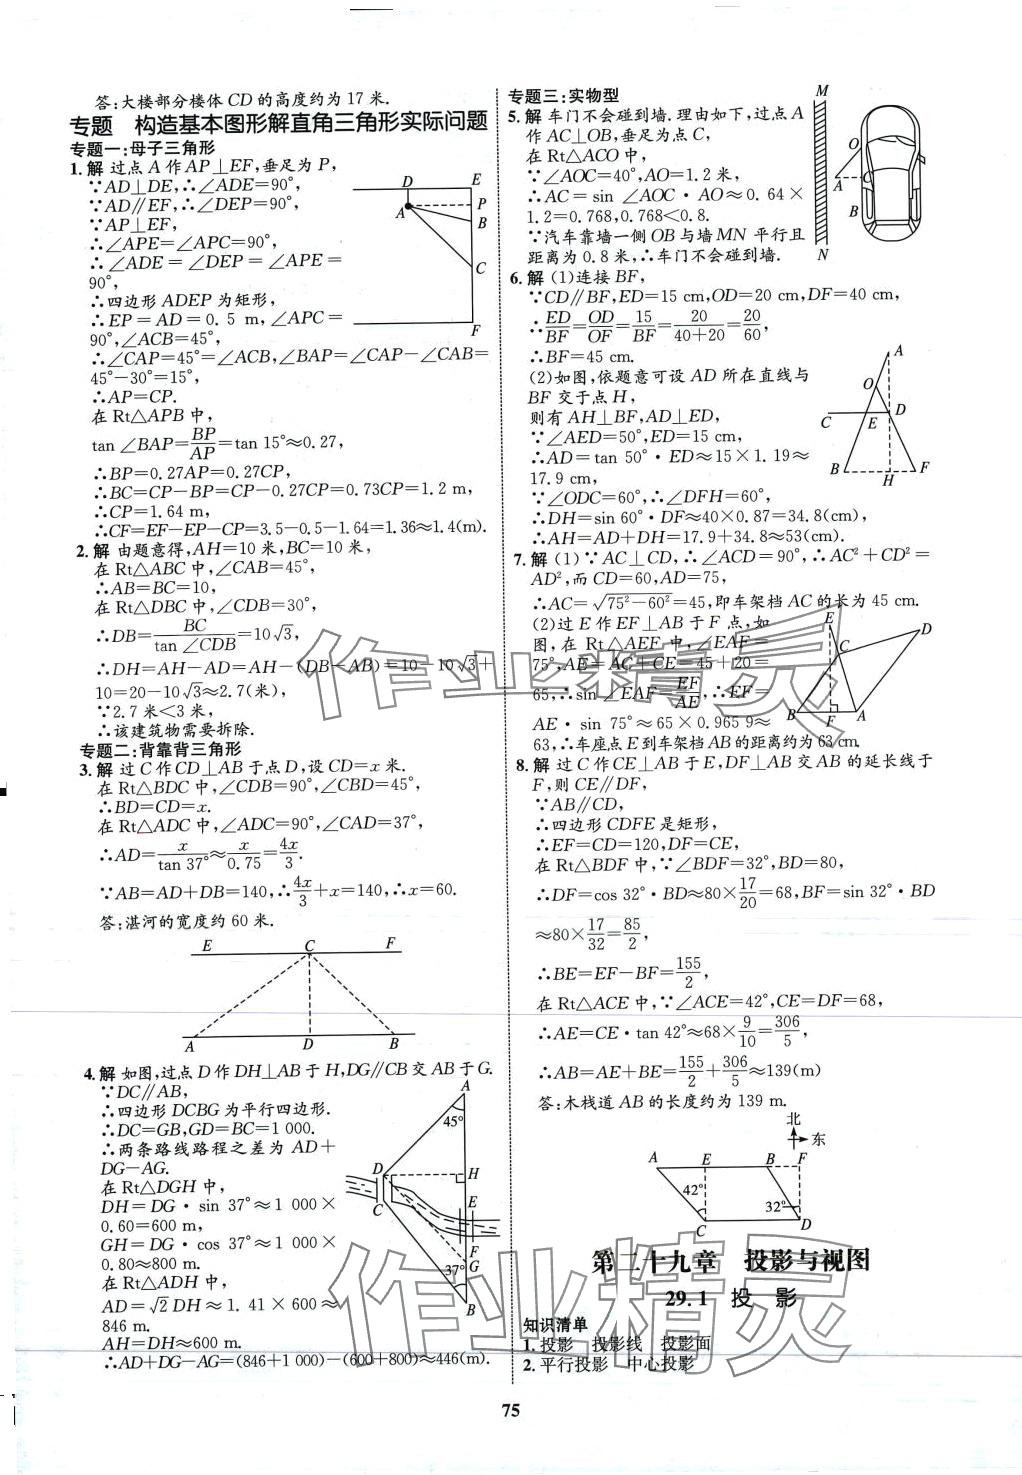 答:大楼部分楼体 CD 的高度约为 17 米.
专题 构造基本图形解直角三角形实际问题
专题一:母子三角形
1. 解 过点 A 作 AP⊥EF,垂足为 P,
∵AD⊥DE,∴∠ADE=90°,
∵AD∥EF,∴∠DEP=90°,
∵AP⊥EF,
∴∠APE=∠APC=90°,
∴∠ADE=∠DEP=∠APE=
90°,
∴四边形 ADEP 为矩形,
∴EP=AD=0.5 m,∠APC=
90°,∠ACB=45°,
∴∠CAP=45°=∠ACB,∠BAP=∠CAP-∠CAB=
45°-30°=15°,
∴AP=CP.
在 Rt△APB 中,
tan ∠BAP=BP/AP=tan 15°≈0.27,
∴BP=0.27AP=0.27CP,
∴BC=CP-BP=CP-0.27CP=0.73CP=1.2 m,
∴CP=1.64 m,
∴CF=EF-EP-CP=3.5-0.5-1.64=1.36≈1.4(m).
D
E
A
P
B
C
F
2. 解 由题意得,AH=10 米,BC=10 米,
在 Rt△ABC 中,∠CAB=45°,
∴AB=BC=10,
在 Rt△DBC 中,∠CDB=30°,
∴DB=BC/tan ∠CDB=10√3,
∴DH=AH-AD=AH-(DB-AB)=10-10√3+
10=20-10√3≈2.7(米),
∵2.7 米<3 米,
∴该建筑物需要拆除.
专题二:背靠背三角形
3. 解 过 C 作 CD⊥AB 于点 D,设 CD=x 米.
在 Rt△BDC 中,∠CDB=90°,∠CBD=45°,
∴BD=CD=x.
在 Rt△ADC 中,∠ADC=90°,∠CAD=37°,
∴AD=x/tan 37°≈x/0.75=4x/3.
∵AB=AD+DB=140,∴4x/3+x=140,∴x=60.
答:湛河的宽度约 60 米.
E C F
A D B
4. 解 如图,过点 D 作 DH⊥AB 于 H,DG∥CB 交 AB 于 G.
∵DC∥AB,
∴四边形 DCBG 为平行四边形.
∴DC=GB,GD=BC=1 000.
∴两条路线路程之差为 AD+
DG-AG.
在 Rt△DGH 中,
DH=DG·sin 37°≈1 000×
0.60=600 m,
GH=DG·cos 37°≈1 000×
0.80≈800 m.
在 Rt△ADH 中,
AD=√2DH≈1.41×600≈
846 m.
AH=DH≈600 m.
∴AD+DG-AG=(846+1 000)-(600+800)≈446(m).
A
45°
D
H
C
E
F
37° G
B
专题三:实物型
5. 解 车门不会碰到墙.理由如下,过点 A
作 AC⊥OB,垂足为点 C,
在 Rt△ACO 中,
∵∠AOC=40°,AO=1.2 米,
∴AC=sin ∠AOC·AO≈0.64×
1.2=0.768,0.768<0.8.
∵汽车靠墙一侧 OB 与墙 MN 平行且
距离为 0.8 米,∴车门不会碰到墙.
M
O
A C
B
N
6. 解 (1)连接 BF,
∵CD∥BF,ED=15 cm,OD=20 cm,DF=40 cm,
∴ED/BF=OD/OF=15/BF=20/(40+20)=20/60,
∴BF=45 cm.
(2)如图,依题意可设 AD 所在直线与
BF 交于点 H,
则有 AH⊥BF,AD⊥ED,
∵∠AED=50°,ED=15 cm,
∴AD=tan 50°·ED≈15×1.19≈
17.9 cm,
∵∠ODC=60°,∴∠DFH=60°,
∴DH=sin 60°·DF≈40×0.87=34.8(cm),
∴AH=AD+DH=17.9+34.8≈53(cm).
A
O
C E D
B H F
7. 解 (1)∵AC⊥CD,∴∠ACD=90°,∴AC²+CD²=
AD²,而 CD=60,AD=75,
∴AC=√75²-60²=45,即车架档 AC 的长为 45 cm.
(2)过 E 作 EF⊥AB 于 F 点,如
图,在 Rt△AEF 中,∠EAF=
75°,AE=AC+CE=45+20=
65,∴sin ∠EAF=EF/AE,∴EF=
AE·sin 75°≈65×0.965 9≈
63,∴车座点 E 到车架档 AB 的距离约为 63 cm.
E
C
D
B F A
8. 解 过 C 作 CE⊥AB 于 E,DF⊥AB 交 AB 的延长线于
F,则 CE∥DF,
∵AB∥CD,
∴四边形 CDFE 是矩形,
∴EF=CD=120,DF=CE,
在 Rt△BDF 中,∵∠BDF=32°,BD=80,
∴DF=cos 32°·BD≈80×17/20=68,BF=sin 32°·BD
≈80×17/32=85/2,
∴BE=EF-BF=155/2,
在 Rt△ACE 中,∵∠ACE=42°,CE=DF=68,
∴AE=CE·tan 42°≈68×9/10=306/5,
∴AB=AE+BE=155/2+306/5≈139(m)
答:木栈道 AB 的长度约为 139 m.
北
东
A E B F
42°
32°
C D
第二十九章 投影与视图
29.1 投 影
知识清单
1. 投影 投影线 投影面
2. 平行投影 中心投影
作业精灵
作业精灵
75